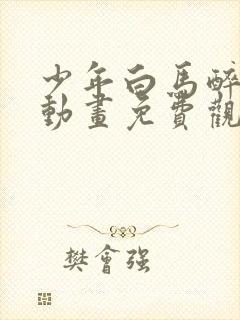 少年白馬醉
動畫免費觀
樊會強